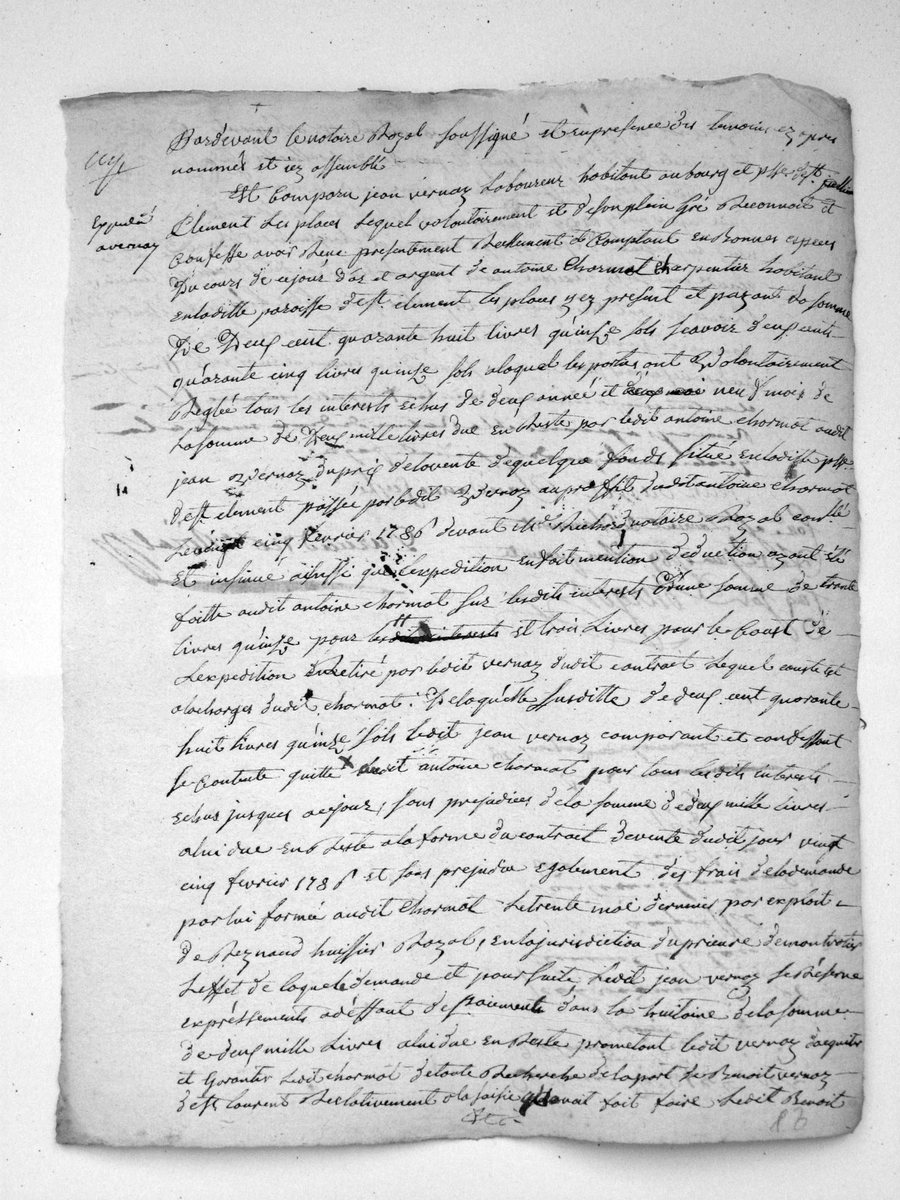 Pardevant le notoire Royal soussigné et en presence des temoins cy apres
nommés et icy assemblé
Est Comparu jean vernay Laboureur habitant au bourg et psse de st
Expedié
a vernay
Clement les places lequel volontairement et de son plein Gré Reconnoit et
Confesse avoir Reçu presentement Reellement et Comptant en Bonnes especes
Du cours de cejour d'or et argent de antoine Charmat charpentier habitant
en laditte paroisse de st. clement les places icy present et payant la somme
De Deux cent quarante huit livres quinze sols scavoir deux cents
quarante cinq livres quinze sols a laquel les parties ont volontairement
Reglée tous les interests echus de deux année et neuf mois de
la somme de Deux mille livres due en Reste par ledit antoine charmat audit
jean vernay du prix de la vente de quelque fonds situé en laditte psse
de st clement passée par ledit vernay au proffit dudit antoine charmat
Le vingt cinq fevrier 1786 devant Me Richard notoire Royal Conllé
Et insinué aissi que l'expedition en fait mention deduction ayant été
faitte audit antoine charmat sur lesdits interests d'une somme de trente
livres quinze pour les dits interests et trois Livres pour le Coust de
L'expedition Retiré par ledit vernay dudit contract lequel couste est
a la charges dudit charmat. De laquelle susditte de deux cent quarante
huit livres quinze sols ledit jean vernay comparant et confessant
se contente quitte ledit antoine charmat pour tous lesdits interests
echus jusques a cejour, sans prejudices de la somme de deux mille livres
a lui due en Reste a la forme du contrait de vente dudit jour vingt
cinq fevrier 1786 et sans prejudice egalement des frais de la demande
par lui formée audit charmat Le trente mai dernier par exploit
de Reynaud huissier Royal, en la jurisdiction du prieuré de montrotier
L'effet de laquele demande et poursuite ledit jean vernay se Reserve
expréssements a déffaut de paiement dans la huitaine de la somme
de deux mille Livres a lui due en Reste prometant ledit vernay d'aquiter
et Garantir ledit charmat de toute Recherche de la part de Benoit vernay
de st Laurent Relativement a la saisie qu'avait fait faire ledit Benoit